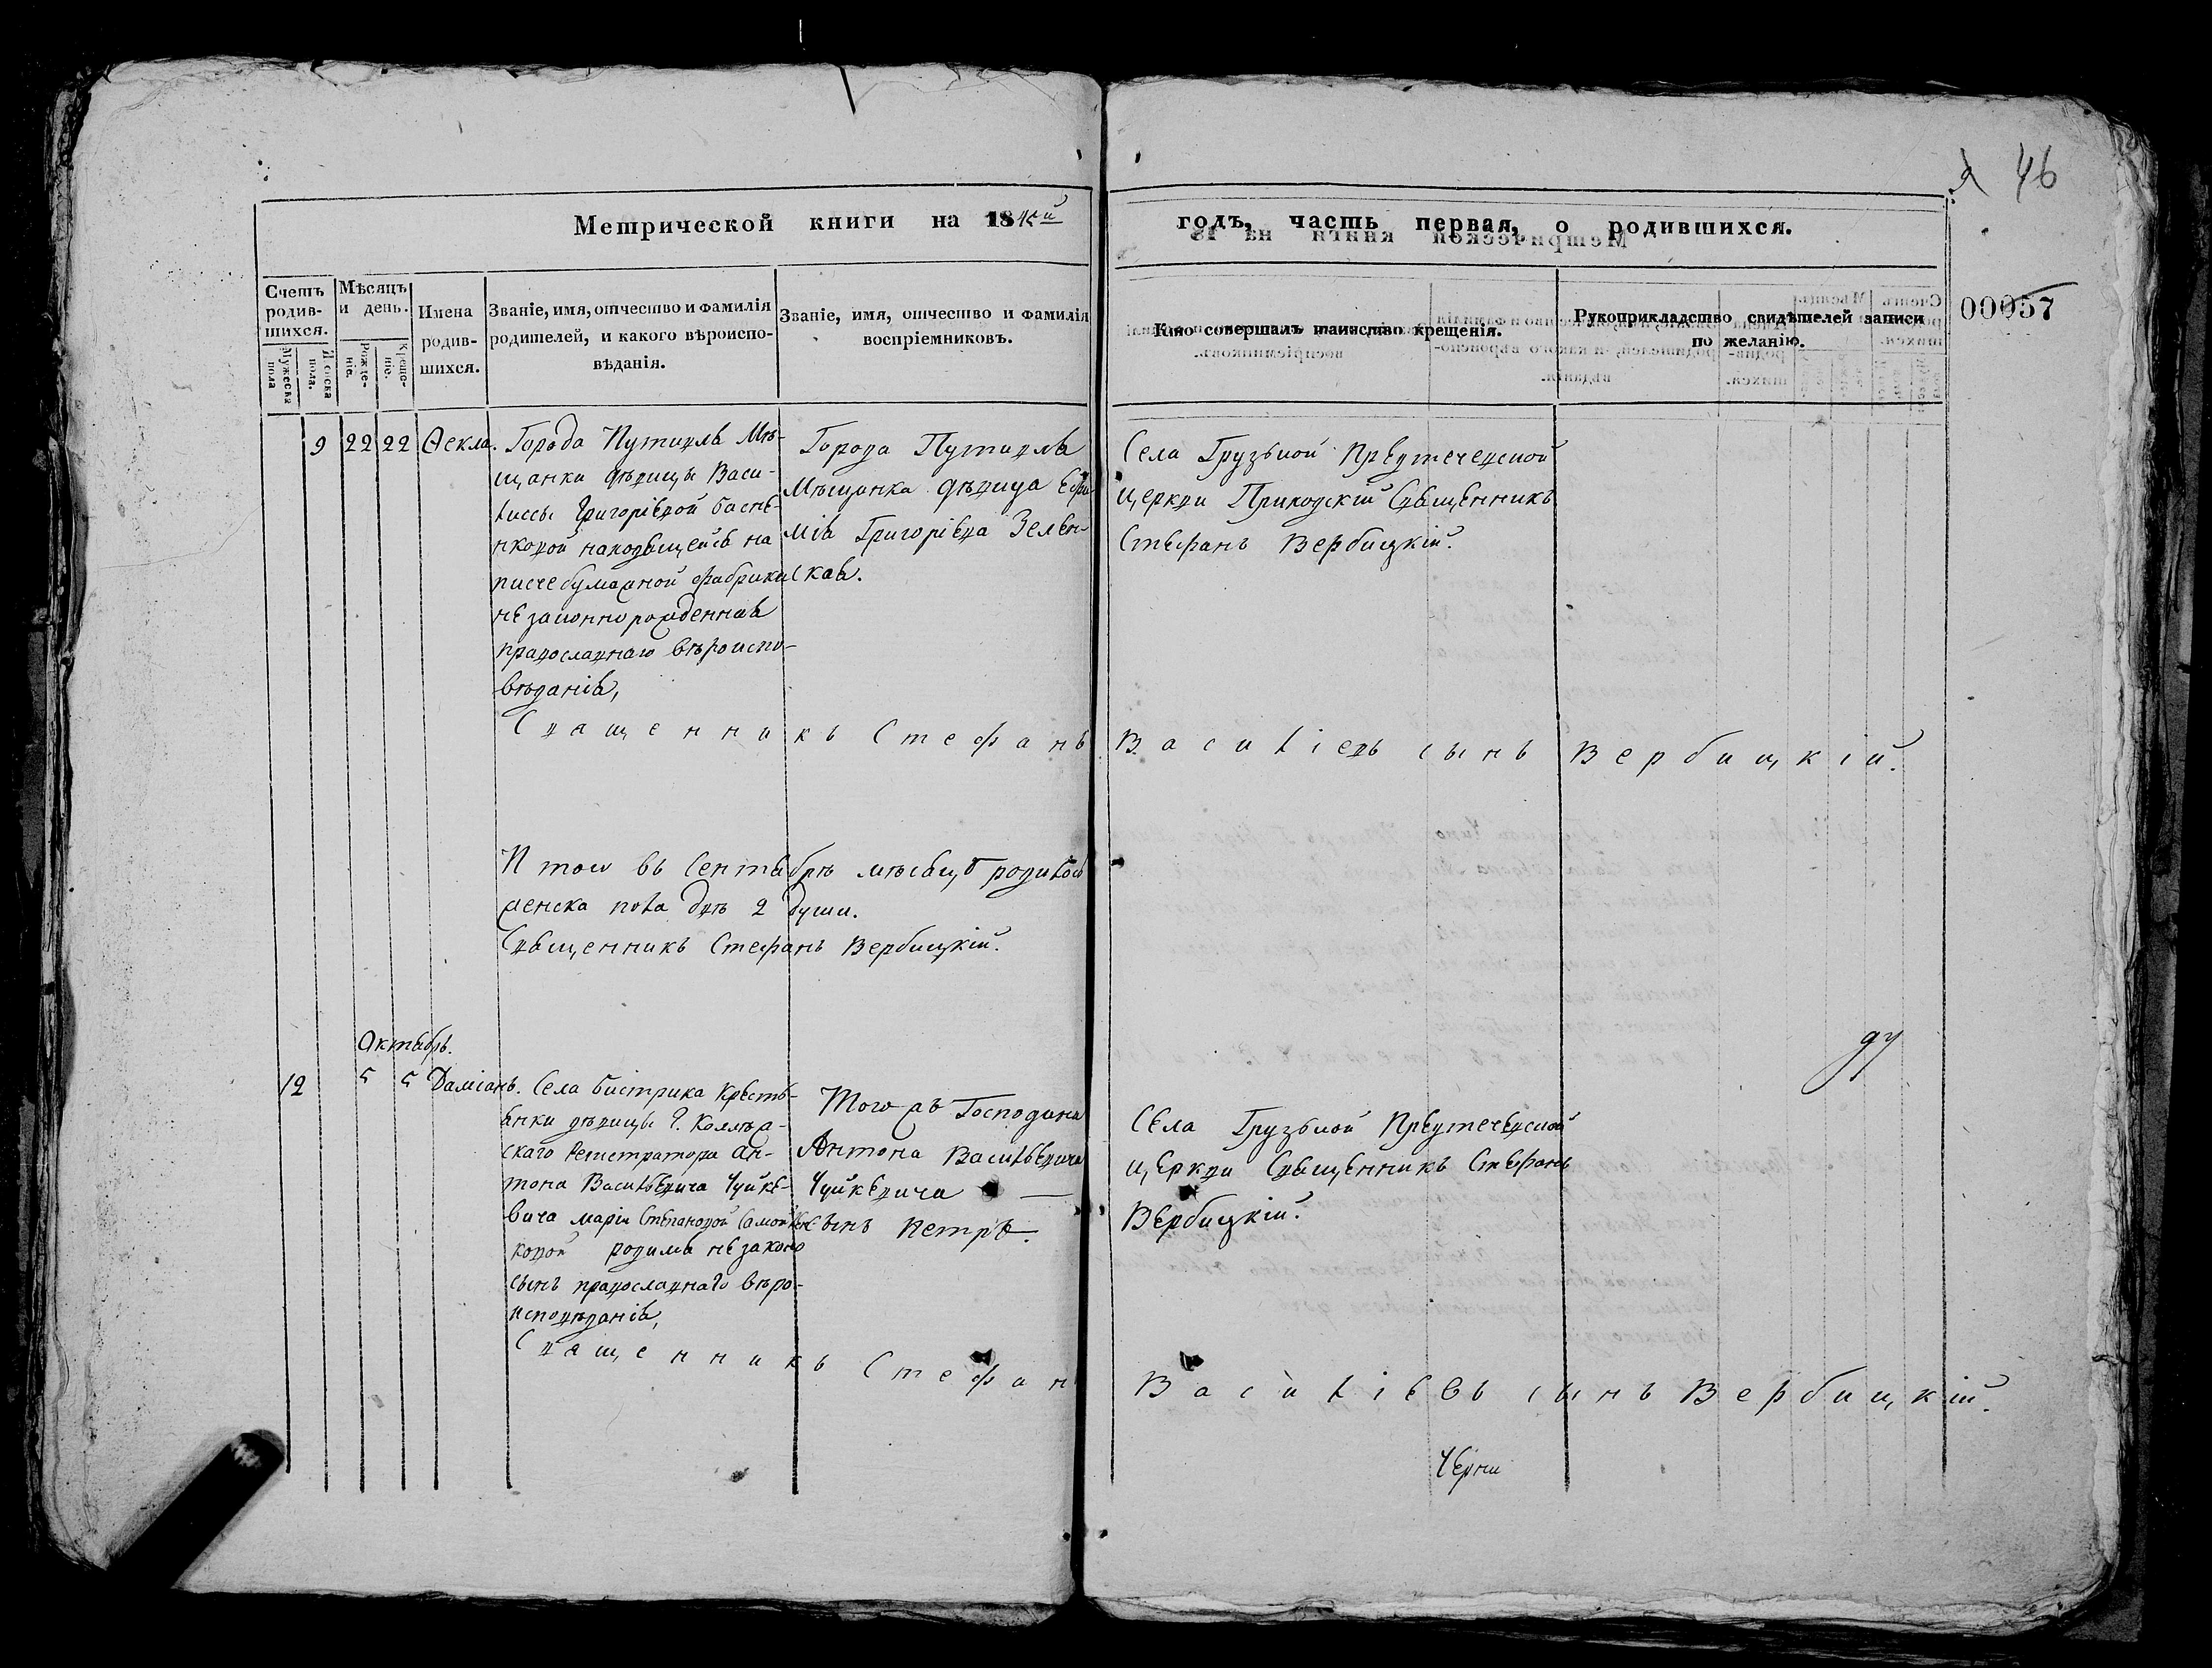 46
Метрической книги на 18
годъ, часть первая, о родившихся.
00057
Счетъ родив-шихся.
Мужеска пола
Женска пола.
Мѣсяцъ и день.
Рожде-ніе.
Креще-ніе.
Имена родив-шихся.
Званіе, имя, отчество и фамилія родителей, и какого вѣроиспо-вѣданія.
Званіе, имя, отчество и фамилія воспріемниковъ.
Кто совершалъ таинство крещенія.
Рукоприкладство свидѣтелей записи по желанію.
9 22 22 Ѳекла.
Города Путивля Мѣ-
щанки дѣвицы Васи-
лиссы Григоріевой
находящейся на
писчебумажной фабрики
незаконнорожденная
православнаго вѣроиспо-
вѣданія,
Города Путивля
Мѣщанка дѣвица Ефи
мія Григоріева Зелен-
ская.
Села Грузской Предтечевской
церкви Приходскій Священникъ
Стефанъ Вербицкій.
Священникъ Стефанъ Василіевъ сынъ Вербицкій.
Итого въ Сентябрѣ мѣсяцѣ родилось
женска пола двѣ 2 души.
Священникъ Стефанъ Вербицкій.
Октябрь.
12 5 5 Даміанъ.
Села Бистрика Кресть-
янки дѣвицы Г. Коллежс-
скаго Регистратора Ан-
тона Васильевича Чуйке-
вича Маріи Степановой
ковой родила незакон
сынъ православнаго вѣро-
исповѣданія,
Того жъ Господина
Антона Васильевича
Чуйкевича
сынъ Петръ.
Села Грузской Предтечевской
церкви Священникъ Стефанъ
Вербицкій.
Священникъ Стефан Василіевъ сынъ Вербицкій.